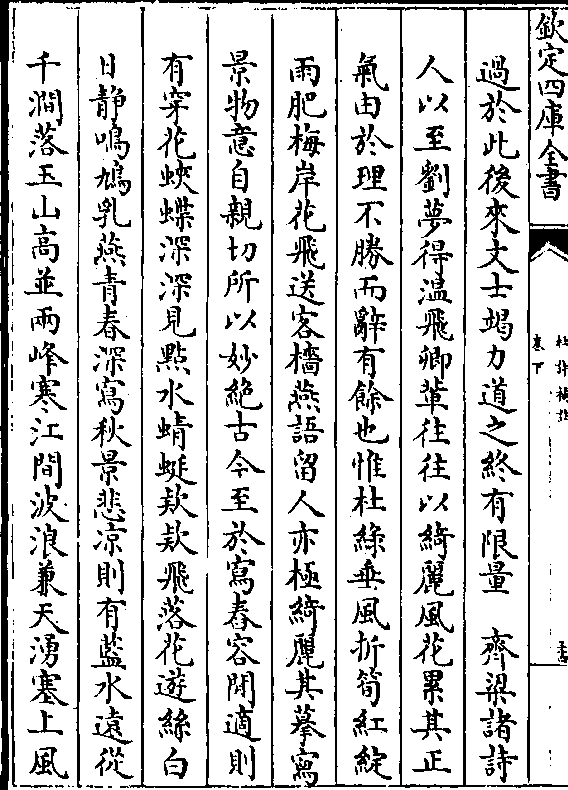 欽定四庫全書
過於此後來文士竭力道之終有限量　齊梁諸詩
人以至劉夢得溫飛卿輩往往以綺麗風花累其正
氣由於理不勝而辭有餘也惟杜綠垂風折筍紅綻
雨肥梅岸花飛送客檣燕語留人亦極綺麗其摹寫
景物意自親切所以妙絕古今至於寫春容閒適則
有穿花蛺蝶深深見點水蜻蜓欵欵飛落花遊絲白
日静鳴鳩乳燕青春深寫秋景悲凉則有藍水遠從
千澗落玉山高並兩峰寒江間波浪兼天湧塞上風